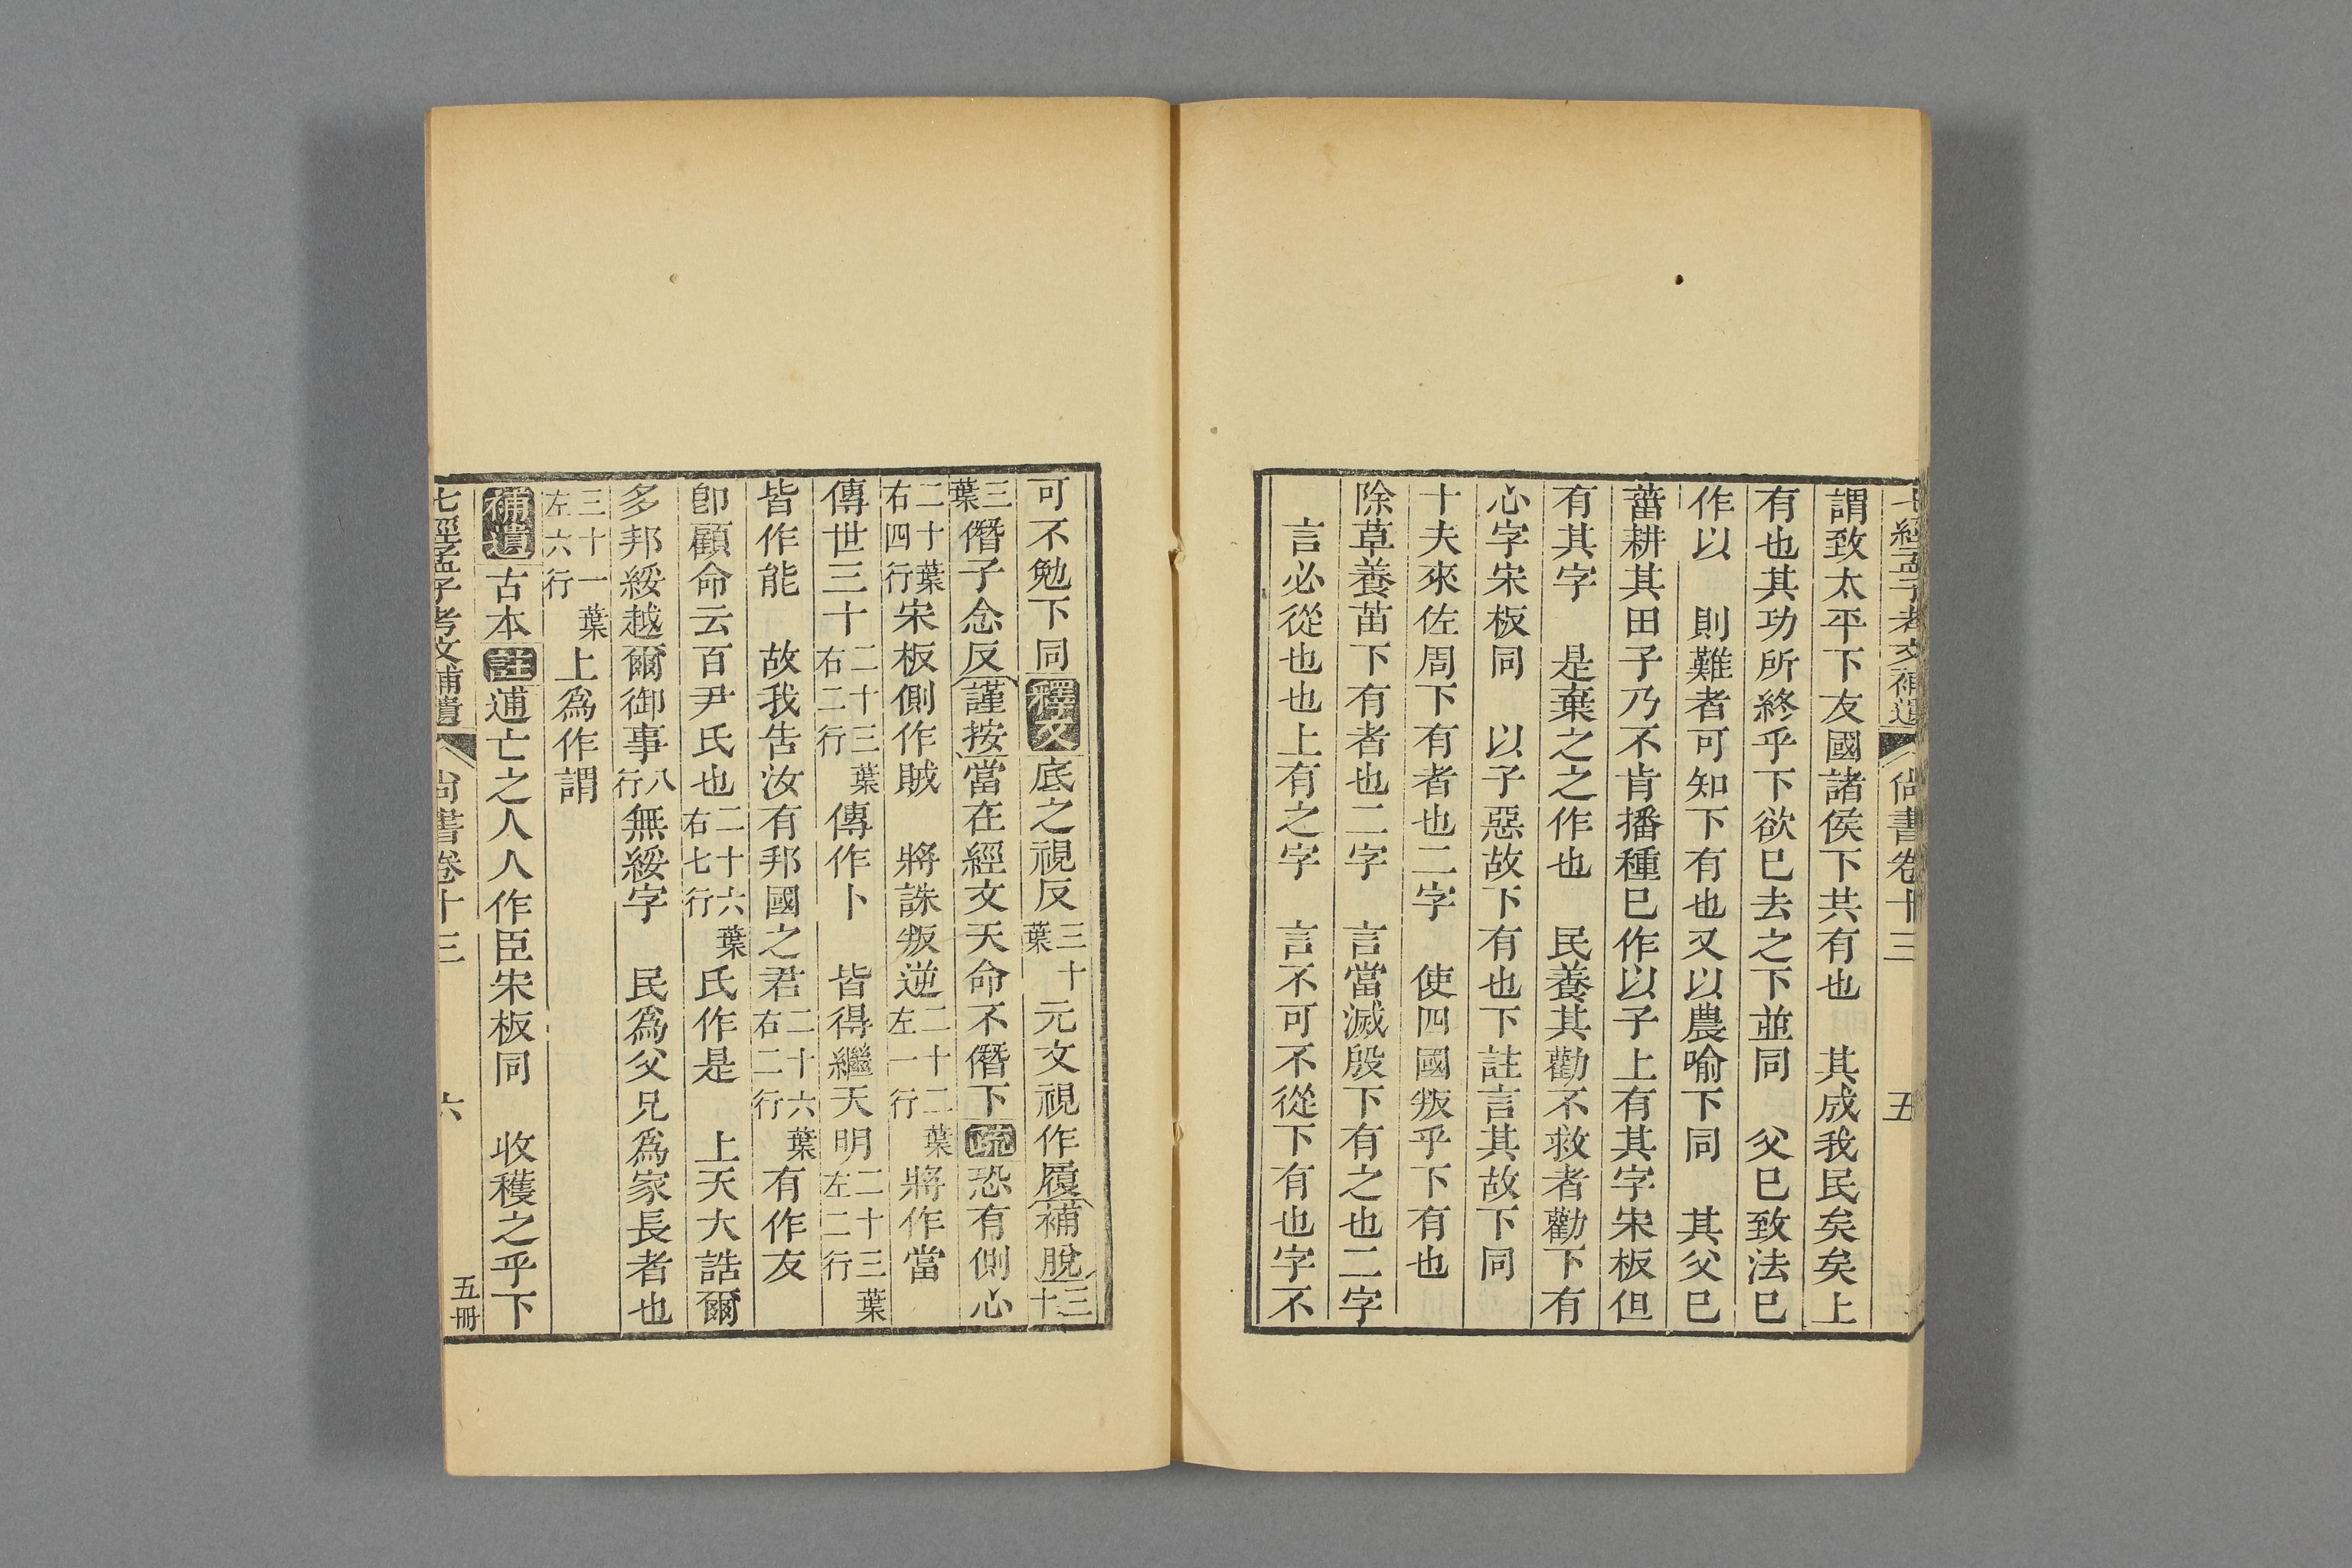 七經孟子考文補遺 尙書卷十三 五
謂致太平下友國諸侯下共有也 其成我民矣矣上
有也其功所終乎下欲巳去之下並同 父巳致法巳
作以 則難者可知下有也又以農喻下同 其父巳
菑耕其田子乃不肯播種巳作以子上有其字宋板但
有其字 是棄之之作也 民養其勸不救者勸下有
心字宋板同 以子惡故下有也下註言其故下同
十夫來佐周下有者也二字 使四國叛乎下有也
除草養苗下有者也二字 言當滅殷下有之也二字
言必從也也上有之字 言不可不從下有也字不
可不勉下同釋文底之視反三十葉元文視作履補脫三十
三葉僭子念反謹按當在經文天命不僭下疏恐有側心
二十葉右四行宋板側作賊 將誅叛逆二十二葉左一行將作當
傳世三十二十三葉右二行傳作卜 皆得繼天明二十三葉左二行
皆作能 故我告汝有邦國之君二十六葉右二行有作友
卽顧命云百尹氏也二十六葉右七行氏作是 上天大誥爾
多邦綏越爾御事八行無綏字 民爲父兄爲家長者也
三十一葉左六行上爲作謂
補遺古本註逋亡之人人作臣宋板同 收穫之乎下
七經孟子考文補遺 尙書卷十三 六 五冊